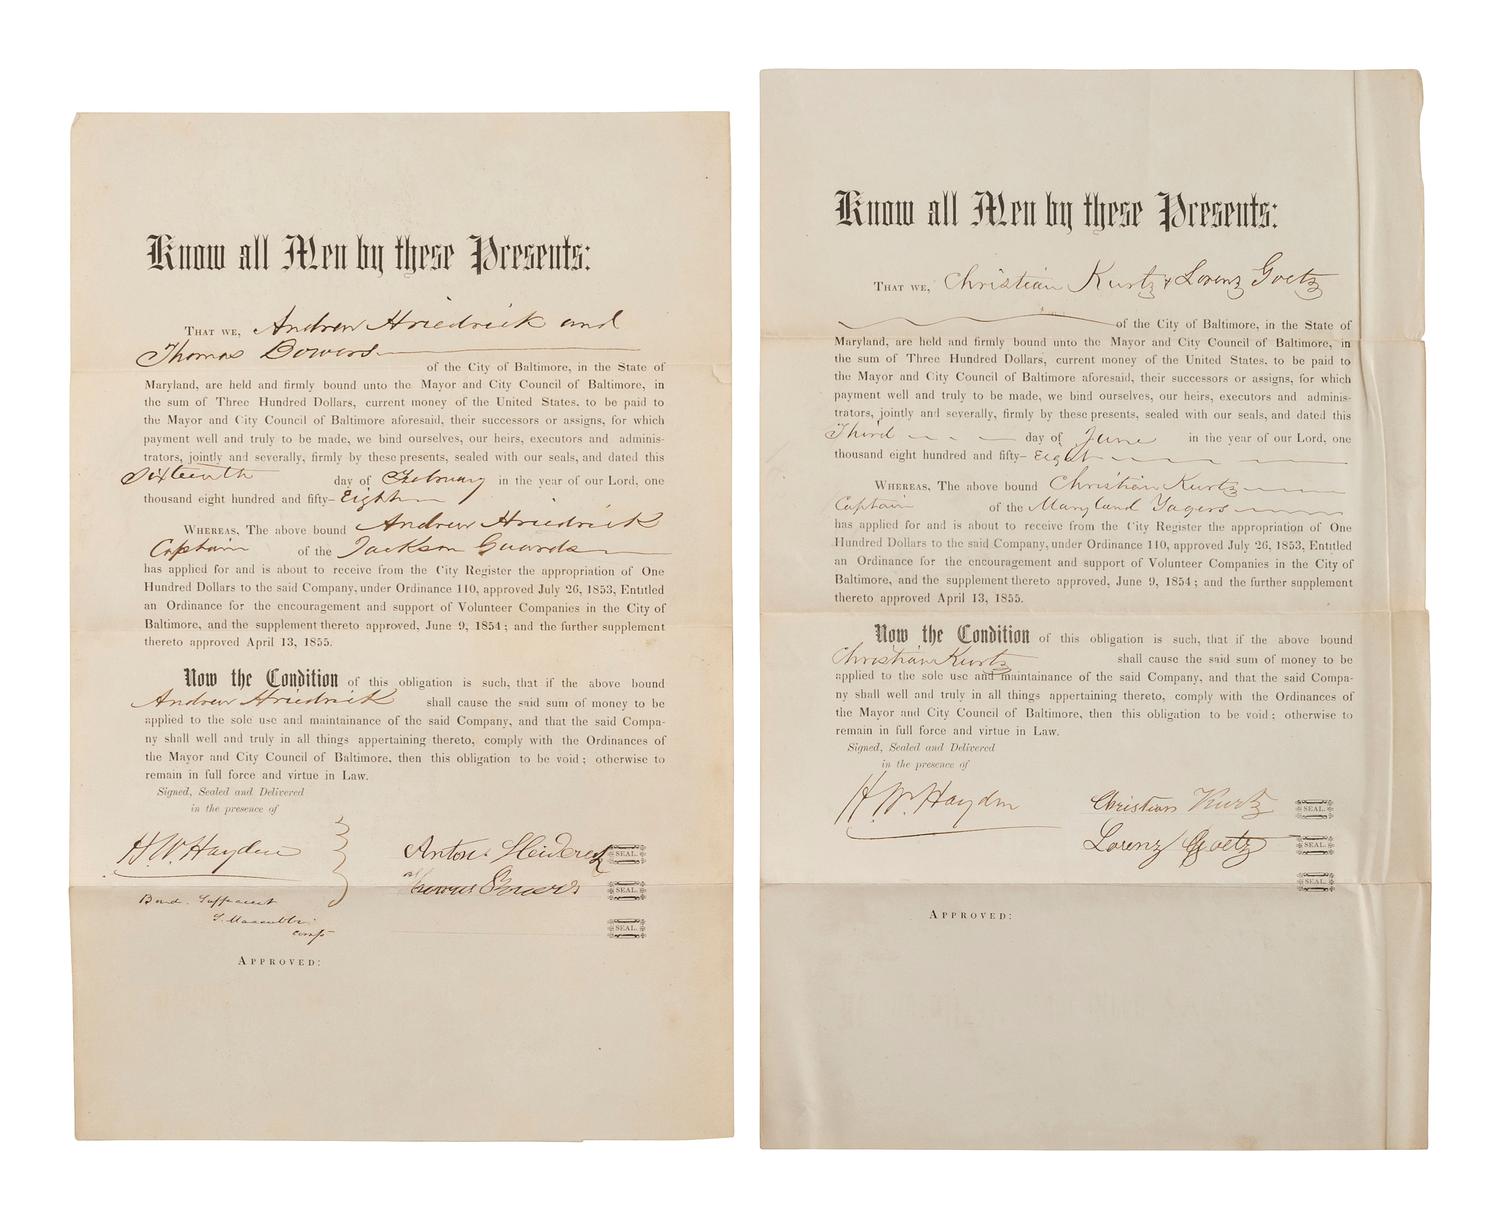 Know all Men by these Presents:
THAT WE, Andrew Hriedrick and
Thomas Bowers
of the City of Baltimore, in the State of
Maryland, are held and firmly bound unto the Mayor and City Council of Baltimore, in
the sum of Three Hundred Dollars, current money of the United States, to be paid to
the Mayor and City Council of Baltimore aforesaid, their successors or assigns, for which
payment well and truly to be made, we bind ourselves, our heirs, executors and adminis-
trators, jointly and severally, firmly by these presents, sealed with our seals, and dated this
Sixteenth day of February in the year of our Lord, one
thousand eight hundred and fifty- Eight
WHEREAS, The above bound Andrew Hriedrick
Captain of the Jackson Guards
has applied for and is about to receive from the City Register the appropriation of One
Hundred Dollars to the said Company, under Ordinance 110, approved July 26, 1853, Entitled
an Ordinance for the encouragement and support of Volunteer Companies in the City of
Baltimore, and the supplement thereto approved, June 9, 1854; and the further supplement
thereto approved April 13, 1855.
Now the Condition of this obligation is such, that if the above bound
Andrew Hriedrick shall cause the said sum of money to be
applied to the sole use and maintainance of the said Company, and that the said Compa-
ny shall well and truly in all things appertaining thereto, comply with the Ordinances of
the Mayor and City Council of Baltimore, then this obligation to be void; otherwise to
remain in full force and virtue in Law.
Signed, Sealed and Delivered
in the presence of
H. W. Hayden
Anton SEAL.
Thomas Bowers SEAL.
Bond Sufficient
SEAL.
APPROVED:
Know all Men by these Presents:
THAT WE, Christian Kurtz & Lorenz Goetz
of the City of Baltimore, in the State of
Maryland, are held and firmly bound unto the Mayor and City Council of Baltimore, in
the sum of Three Hundred Dollars, current money of the United States, to be paid to
the Mayor and City Council of Baltimore aforesaid, their successors or assigns, for which
payment well and truly to be made, we bind ourselves, our heirs, executors and adminis-
trators, jointly and severally, firmly by these presents, sealed with our seals, and dated this
Third day of June in the year of our Lord, one
thousand eight hundred and fifty- Eight
WHEREAS, The above bound Christian Kurtz
Captain of the Maryland Yagers
has applied for and is about to receive from the City Register the appropriation of One
Hundred Dollars to the said Company, under Ordinance 110, approved July 26, 1853, Entitled
an Ordinance for the encouragement and support of Volunteer Companies in the City of
Baltimore, and the supplement thereto approved, June 9, 1854; and the further supplement
thereto approved April 13, 1855.
Now the Condition of this obligation is such, that if the above bound
Christian Kurtz shall cause the said sum of money to be
applied to the sole use and maintainance of the said Company, and that the said Compa-
ny shall well and truly in all things appertaining thereto, comply with the Ordinances of
the Mayor and City Council of Baltimore, then this obligation to be void; otherwise to
remain in full force and virtue in Law.
Signed, Sealed and Delivered
in the presence of
H. W. Hayden
Christian Kurtz SEAL.
Lorenz Goetz SEAL.
SEAL.
APPROVED: